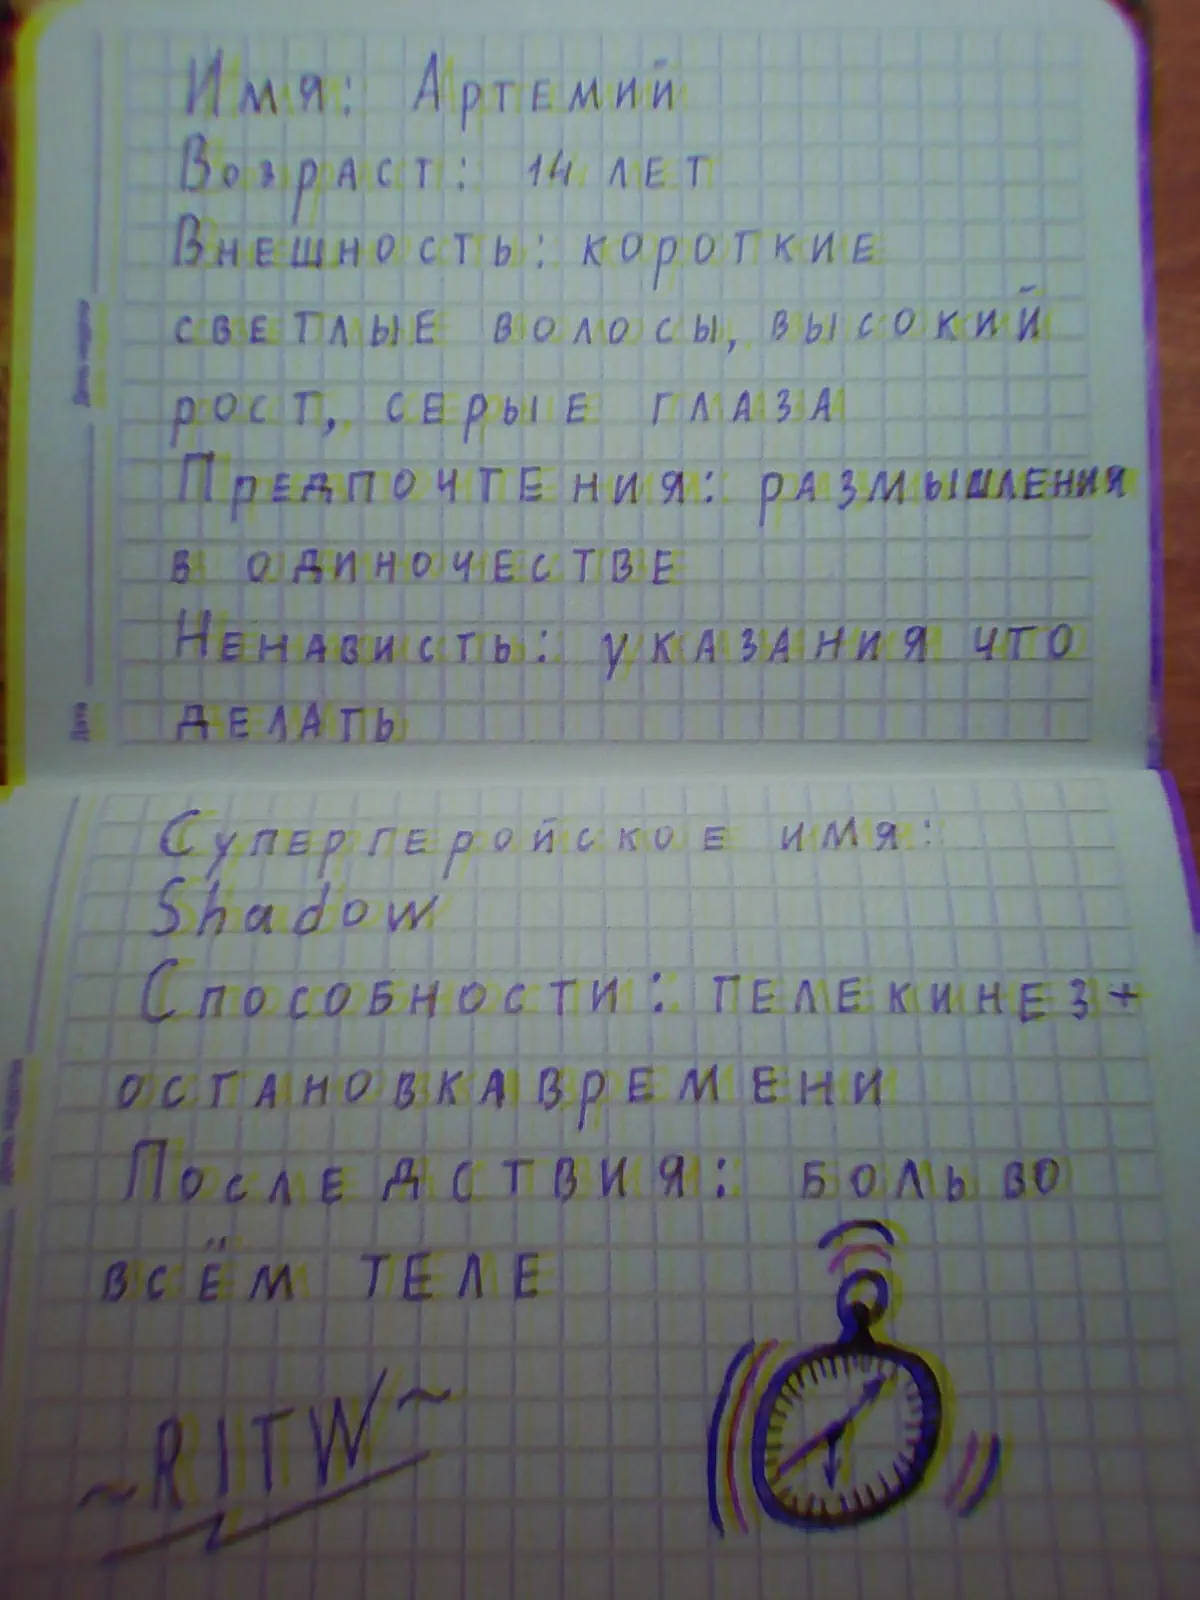 Имя: Артемий
Возраст: 14 лет
Внешность: короткие
светлые волосы, высокий
рост, серые глаза
Предпочтения: размышления
в одиночестве
Ненависть: указания что
делать
Дата
Супергеройское имя:
Shadow
Способности: телекинез +
остановка времени
Последствия: боль во
всём теле
~RITW~